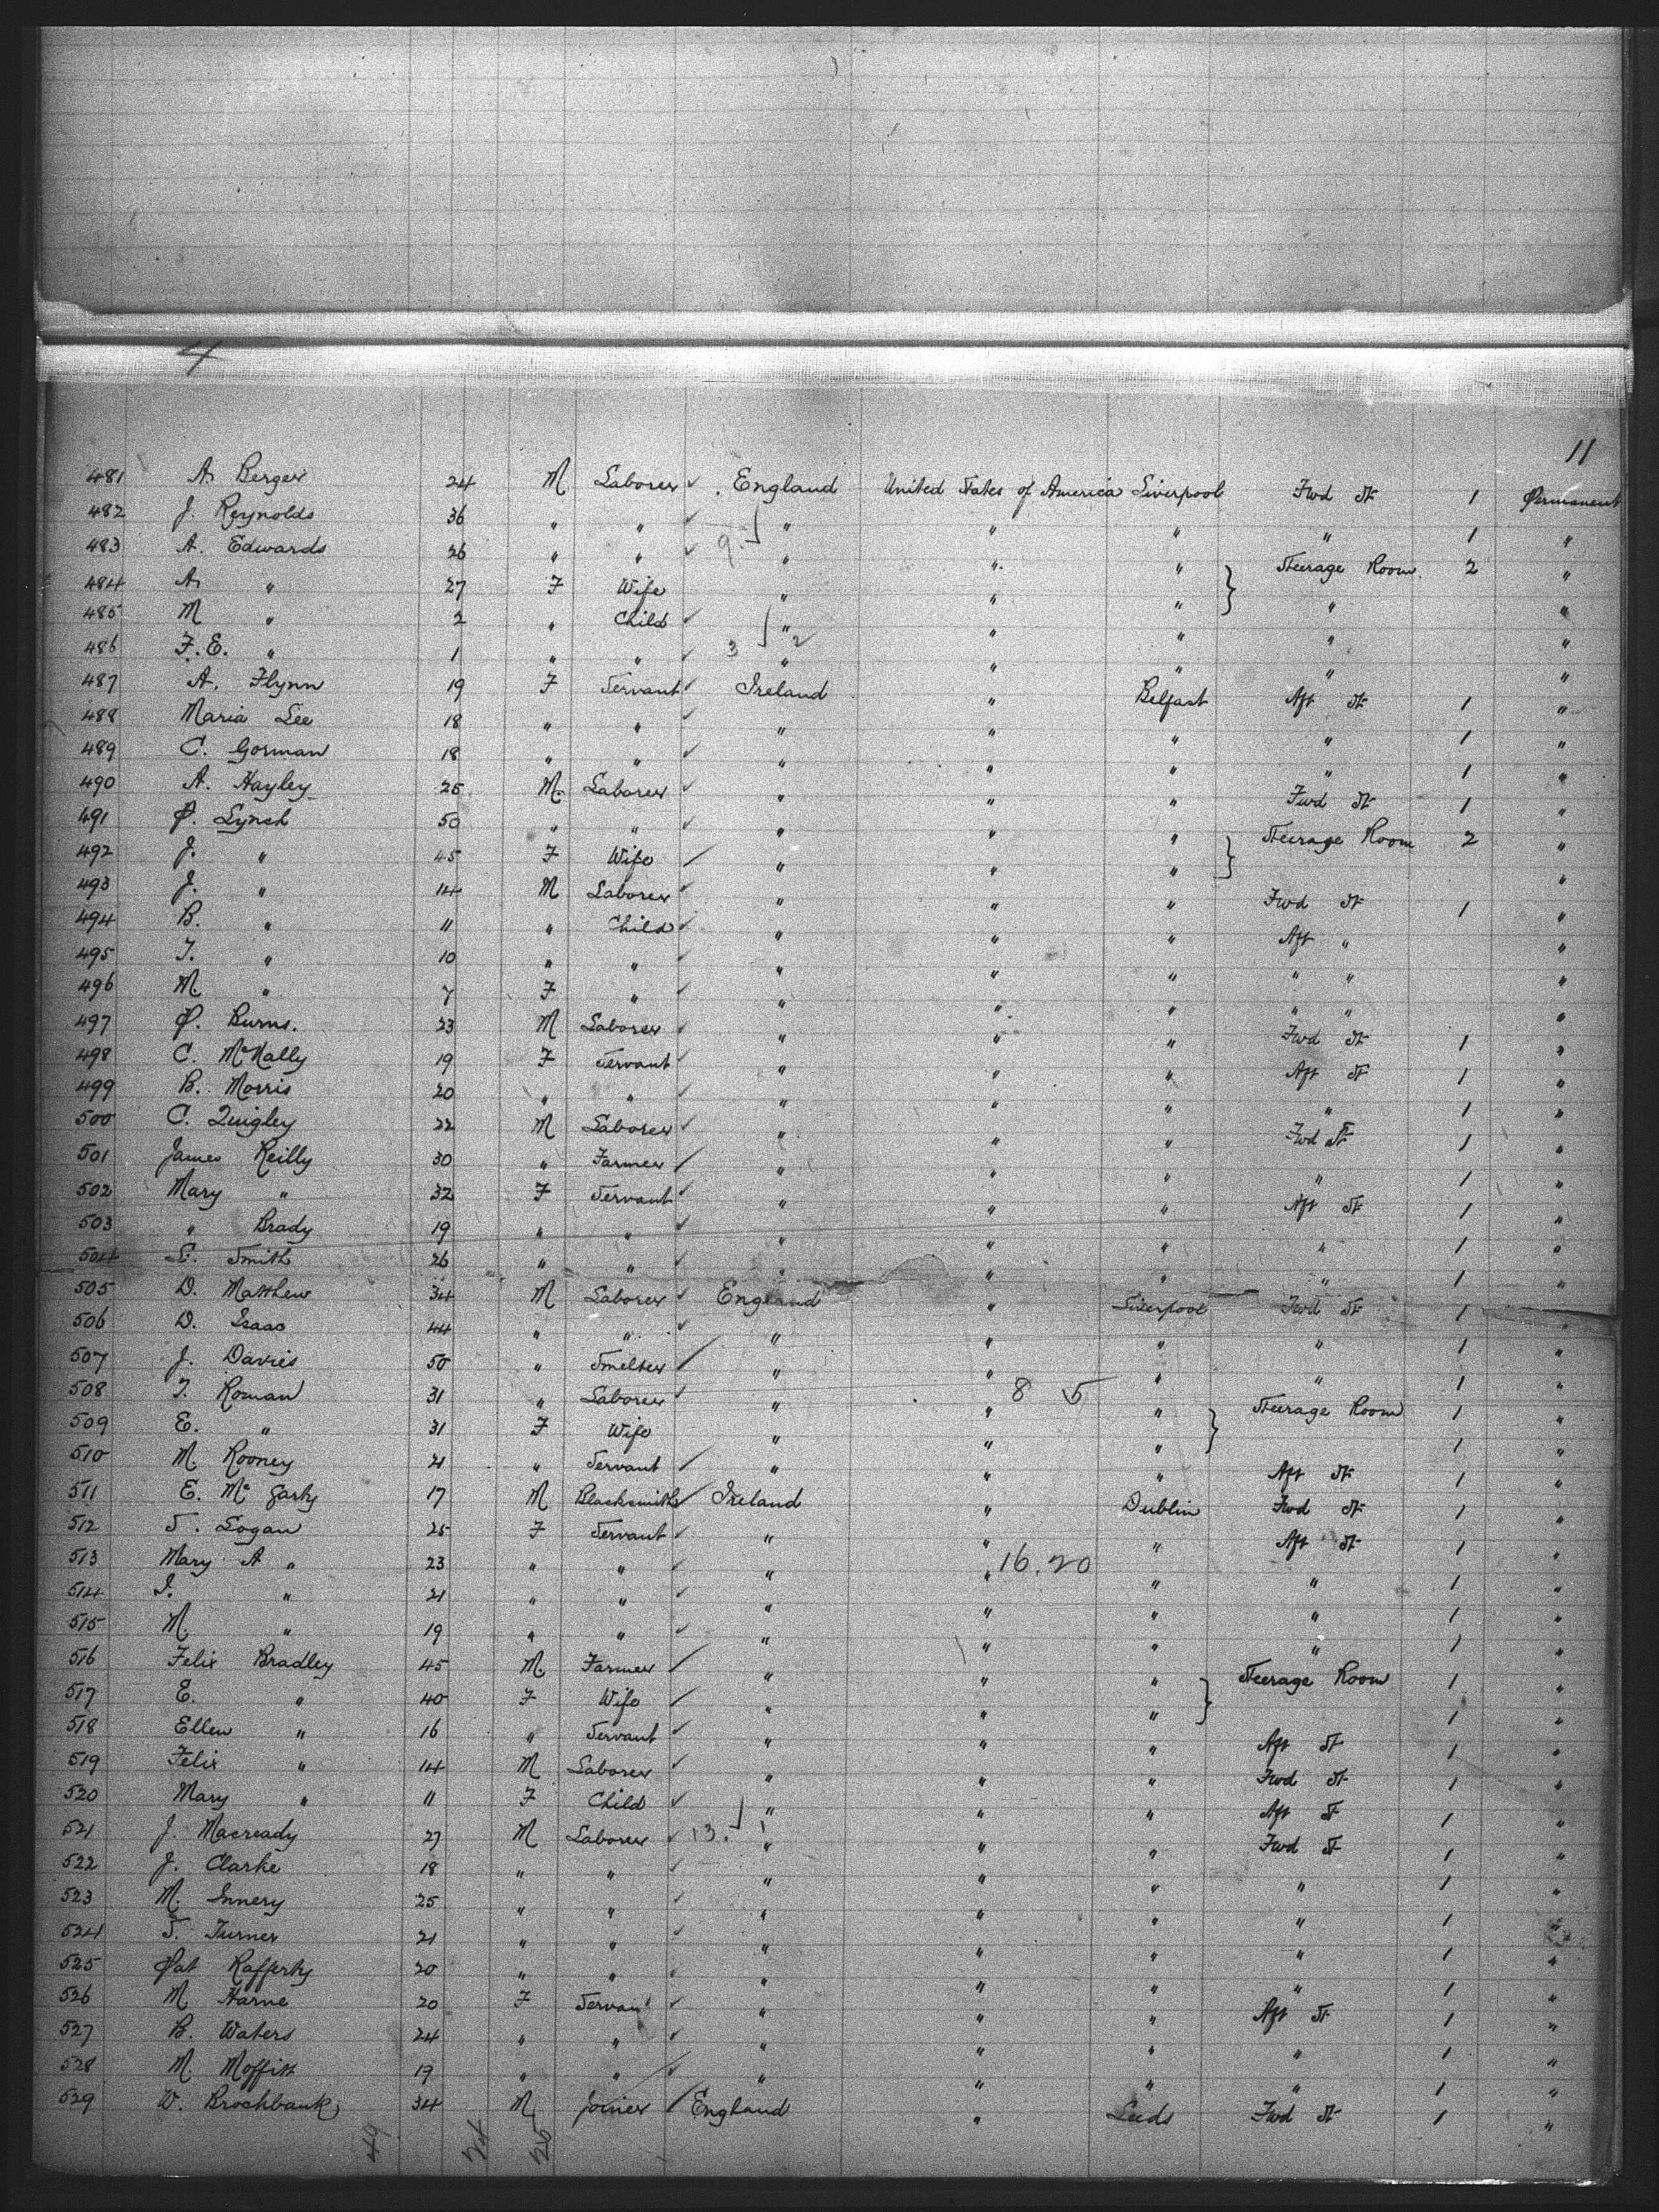 4
11
481 A. Berger 24 M Laborer ✓ England United States of America Liverpool Fwd St 1 Permanent
482 J. Reynolds 36 " " ✓ " " " " 1 "
483 A. Edwards 26 " " ✓ 9. " " " Steerage Room 2 "
484 A. " 27 F Wife " " " " "
485 M " 2 " Child ✓ " " " " "
486 F.E. " 1 " " ✓ 3 2 " " " " "
487 A. Flynn 19 F Servant ✓ Ireland " Belfast Aft St 1 "
488 Maria Lee 18 " " ✓ " " " " 1 "
489 C. Gorman 18 " " ✓ " " " " 1 "
490 A. Hayley 25 M Laborer ✓ " " " Fwd St 1 "
491 P. Lynch 50 " " ✓ " " " Steerage Room 2 "
492 J. " 45 F Wife ✓ " " " "
493 J. " 14 M Laborer ✓ " " " Fwd St 1 "
494 B. " 11 " Child ✓ " " " Aft " "
495 T. " 10 " " ✓ " " " " " "
496 M. " 7 F " ✓ " " " " " "
497 P. Burns. 23 M Laborer ✓ " " " Fwd St 1 "
498 C. McNally 19 F Servant ✓ " " " Aft St 1 "
499 B. Morris 20 " " ✓ " " " " 1 "
500 C. Quigley 22 M Laborer ✓ " " " Fwd St 1 "
501 James Reilly 30 " Farmer ✓ " " " " 1 "
502 Mary " 32 F Servant ✓ " " " Aft St 1 "
503 " Brady 19 " " ✓ " " " " 1 "
504 S. Smith 26 " " ✓ " " " " 1 "
505 D. Matthew 34 M Laborer ✓ England " Liverpool Fwd St 1 "
506 D. Isaac 44 " " ✓ " " " " 1 "
507 J. Davies 50 " Smelter ✓ " " " " 1 "
508 T. Roman 31 " Laborer ✓ " 8 5 " " Steerage Room 1 "
509 E. " 31 F Wife " " " 1 "
510 M. Rooney 21 " Servant ✓ " " " Aft St 1 "
511 E. Mc Garty 17 M Blacksmith ✓ Ireland " Dublin Fwd St 1 "
512 S. Logan 25 F Servant ✓ " " " Aft St 1 "
513 Mary A " 23 " " ✓ " " 16.20 " " 1 "
514 " 21 " " ✓ " " " " 1 "
515 M. " 19 " " ✓ " " " " 1 "
516 Felix Bradley 45 M Farmer ✓ " " " Steerage Room 1 "
517 E. " 40 F Wife ✓ " " " 1 "
518 Ellen " 16 " Servant ✓ " " " Aft St 1 "
519 Felix " 14 M Laborer ✓ " " " Fwd St 1 "
520 Mary " 11 F Child ✓ " " " Aft St 1 "
521 J. Macready 27 M Laborer ✓ 13. 1 " " " Fwd St 1 "
522 J. Clarke 18 " " ✓ " " " " 1 "
523 M. Innery 25 " " ✓ " " " " 1 "
524 S. Turner 21 " " ✓ " " " " 1 "
525 Pat Rafferty 20 " " ✓ " " " " 1 "
526 M. Harne 20 F Servant ✓ " " " Aft St 1 "
527 B. Waters 24 " " ✓ " " " " 1 "
528 M. Moffitt 19 " " ✓ " " " " 1 "
529 W. Brockbank 34 M Joiner ✓ England " Leeds Fwd St 1 "
49 24 25